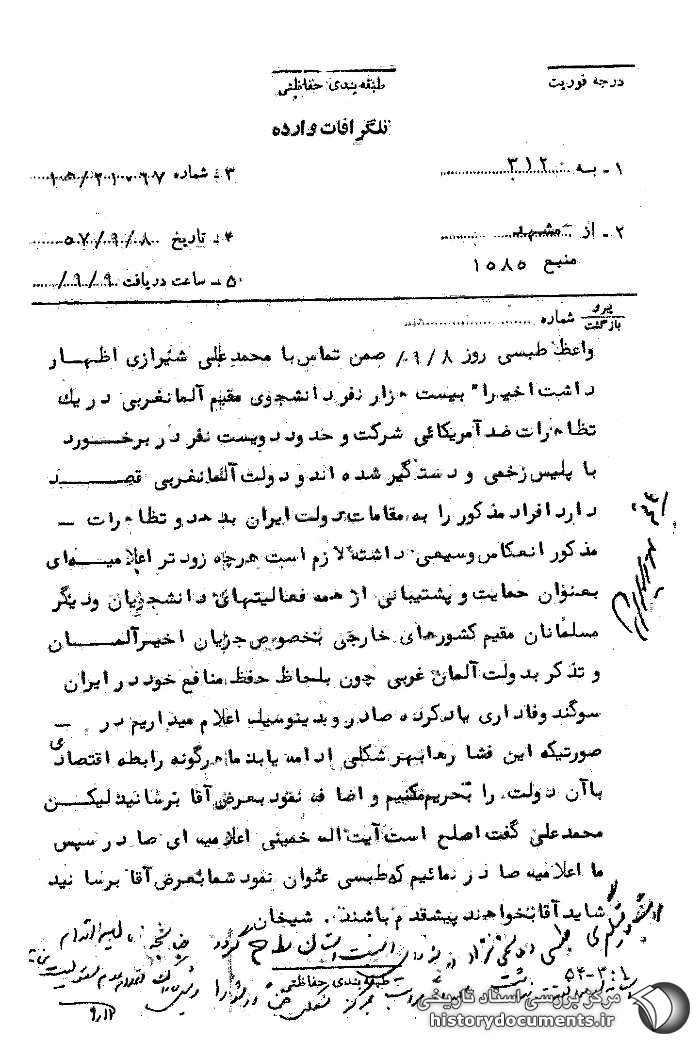 درجه فوریت
طبقه‌بندی حفاظتی
تلگرافات وارده
۱ـ به : ۳۱۲
۳ـ شماره ۱۵/۲۱۰۶۷
۲ـ از : مشهد
۴ـ تاریخ ۵۷/۹/۸
منبع ۱۵۸۵
۵ـ ساعت دریافت ۹/۹/
پیرو
بازگشت
شماره
واعظ طبسی روز ۹/۸/ ضمن تماس با محمدعلی شیرازی اظهار
داشت اخیرا" بیست هزار نفر دانشجوی مقیم آلمانغربی در یك
تظاهرات ضد آمریکائی شرکت و حدود دویست نفر در برخورد
با پلیس زخمی و دستگیر شده اند و دولت آلمانغربی قصد
دارد افراد مذکور را به مقامات دولت ایران بدهد و تظاهرات -
مذکور انعکاس وسیعی داشته لازم است هرچه زود تر اعلامیه‌ای
بعنوان حمایت و پشتیبانی از همه فعالیتهای دانشجویان ودیگر
مسلمانان مقیم کشورهای خارجی بخصوص جریان اخیر آلمان
و تذکر بدولت آلمان غربی چون بلحاظ حفظ منافع خود در ایران
سوگند وفاداری یاد کرده صادر و بدینوسیله اعلام میداریم در -
صورتیکه این فشارها بهر شکلی ادامه یابد ما هرگونه رابطه اقتصادی
با آن دولت را تحریم میکنیم و اضافه نمود بعرض آقا برسانید لیکن
محمدعلی گفت اصلح است آیت اله خمینی اعلامیه ای صادر سپس
ما اعلامیه صادر نمائیم که طبسی عنوان نمود شما بعرض آقا برسانید
شاید آقا بخواهند پیشقدم باشند. شیخان
طبقه‌بندی حفاظتی
۹/۱۲
مرکز بررسی اسناد تاریخی
historydocuments.ir